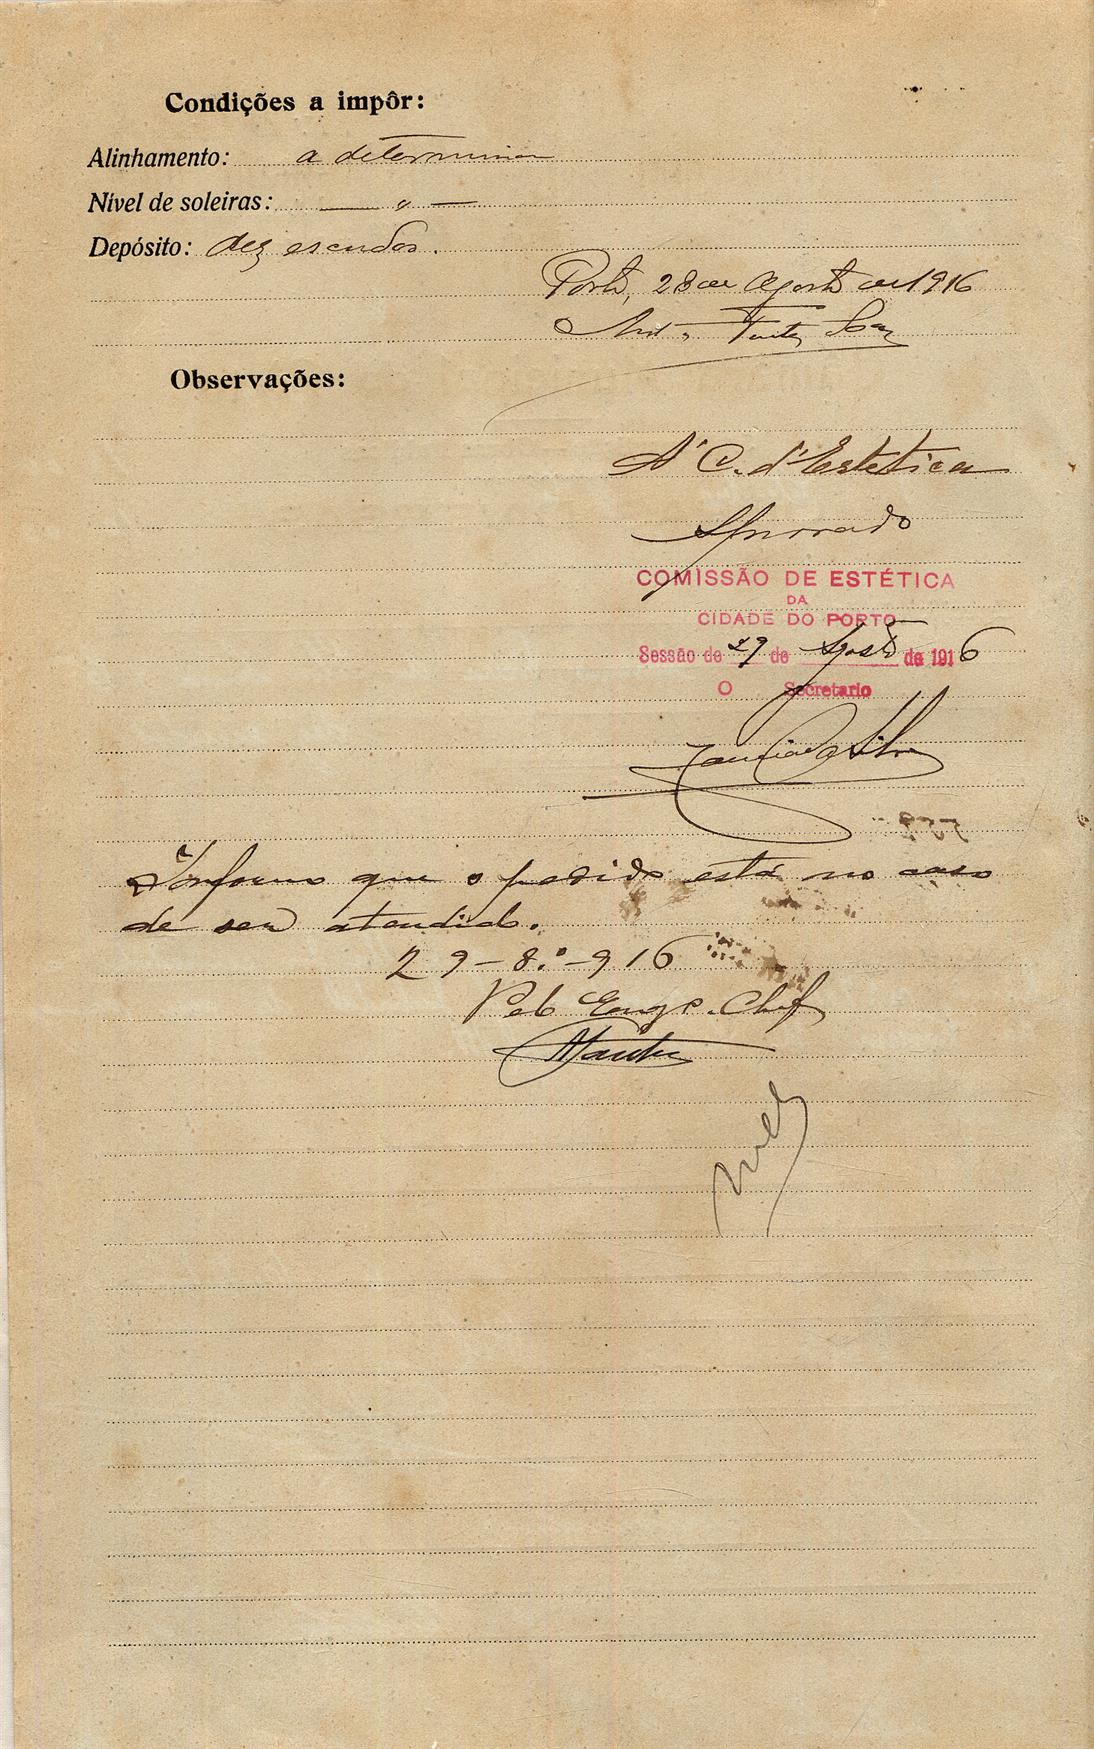 Condições a impôr:
Alinhamento: a determinar
Nível de soleiras: — " —
Depósito: dez escudos.
Porto, 28 de Agosto de 1916
Observações:
A' C. d'Estetica
Aprovado
COMISSÃO DE ESTÉTICA
DA
CIDADE DO PORTO
Sessão de 29 de Agosto de 1916
O Secretario
Informo que o pedido está no caso
de ser atendido.
29-8.º-916
Pelo Engº. Chefe